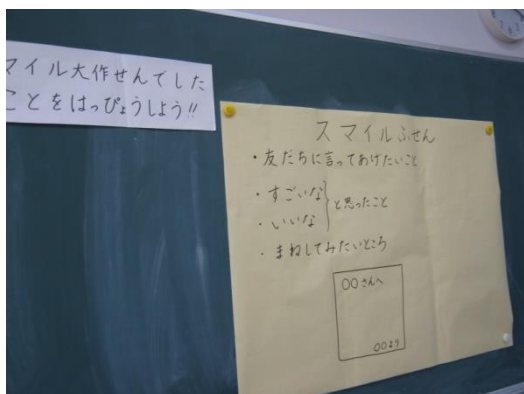 マイル大作せんでした
ことをはっぴょうしよう!!
スマイルふせん
・友だちに言ってあげたいこと
・すごいな
・いいな
と思ったこと
・まねしてみたいところ
〇〇さんへ
〇〇より